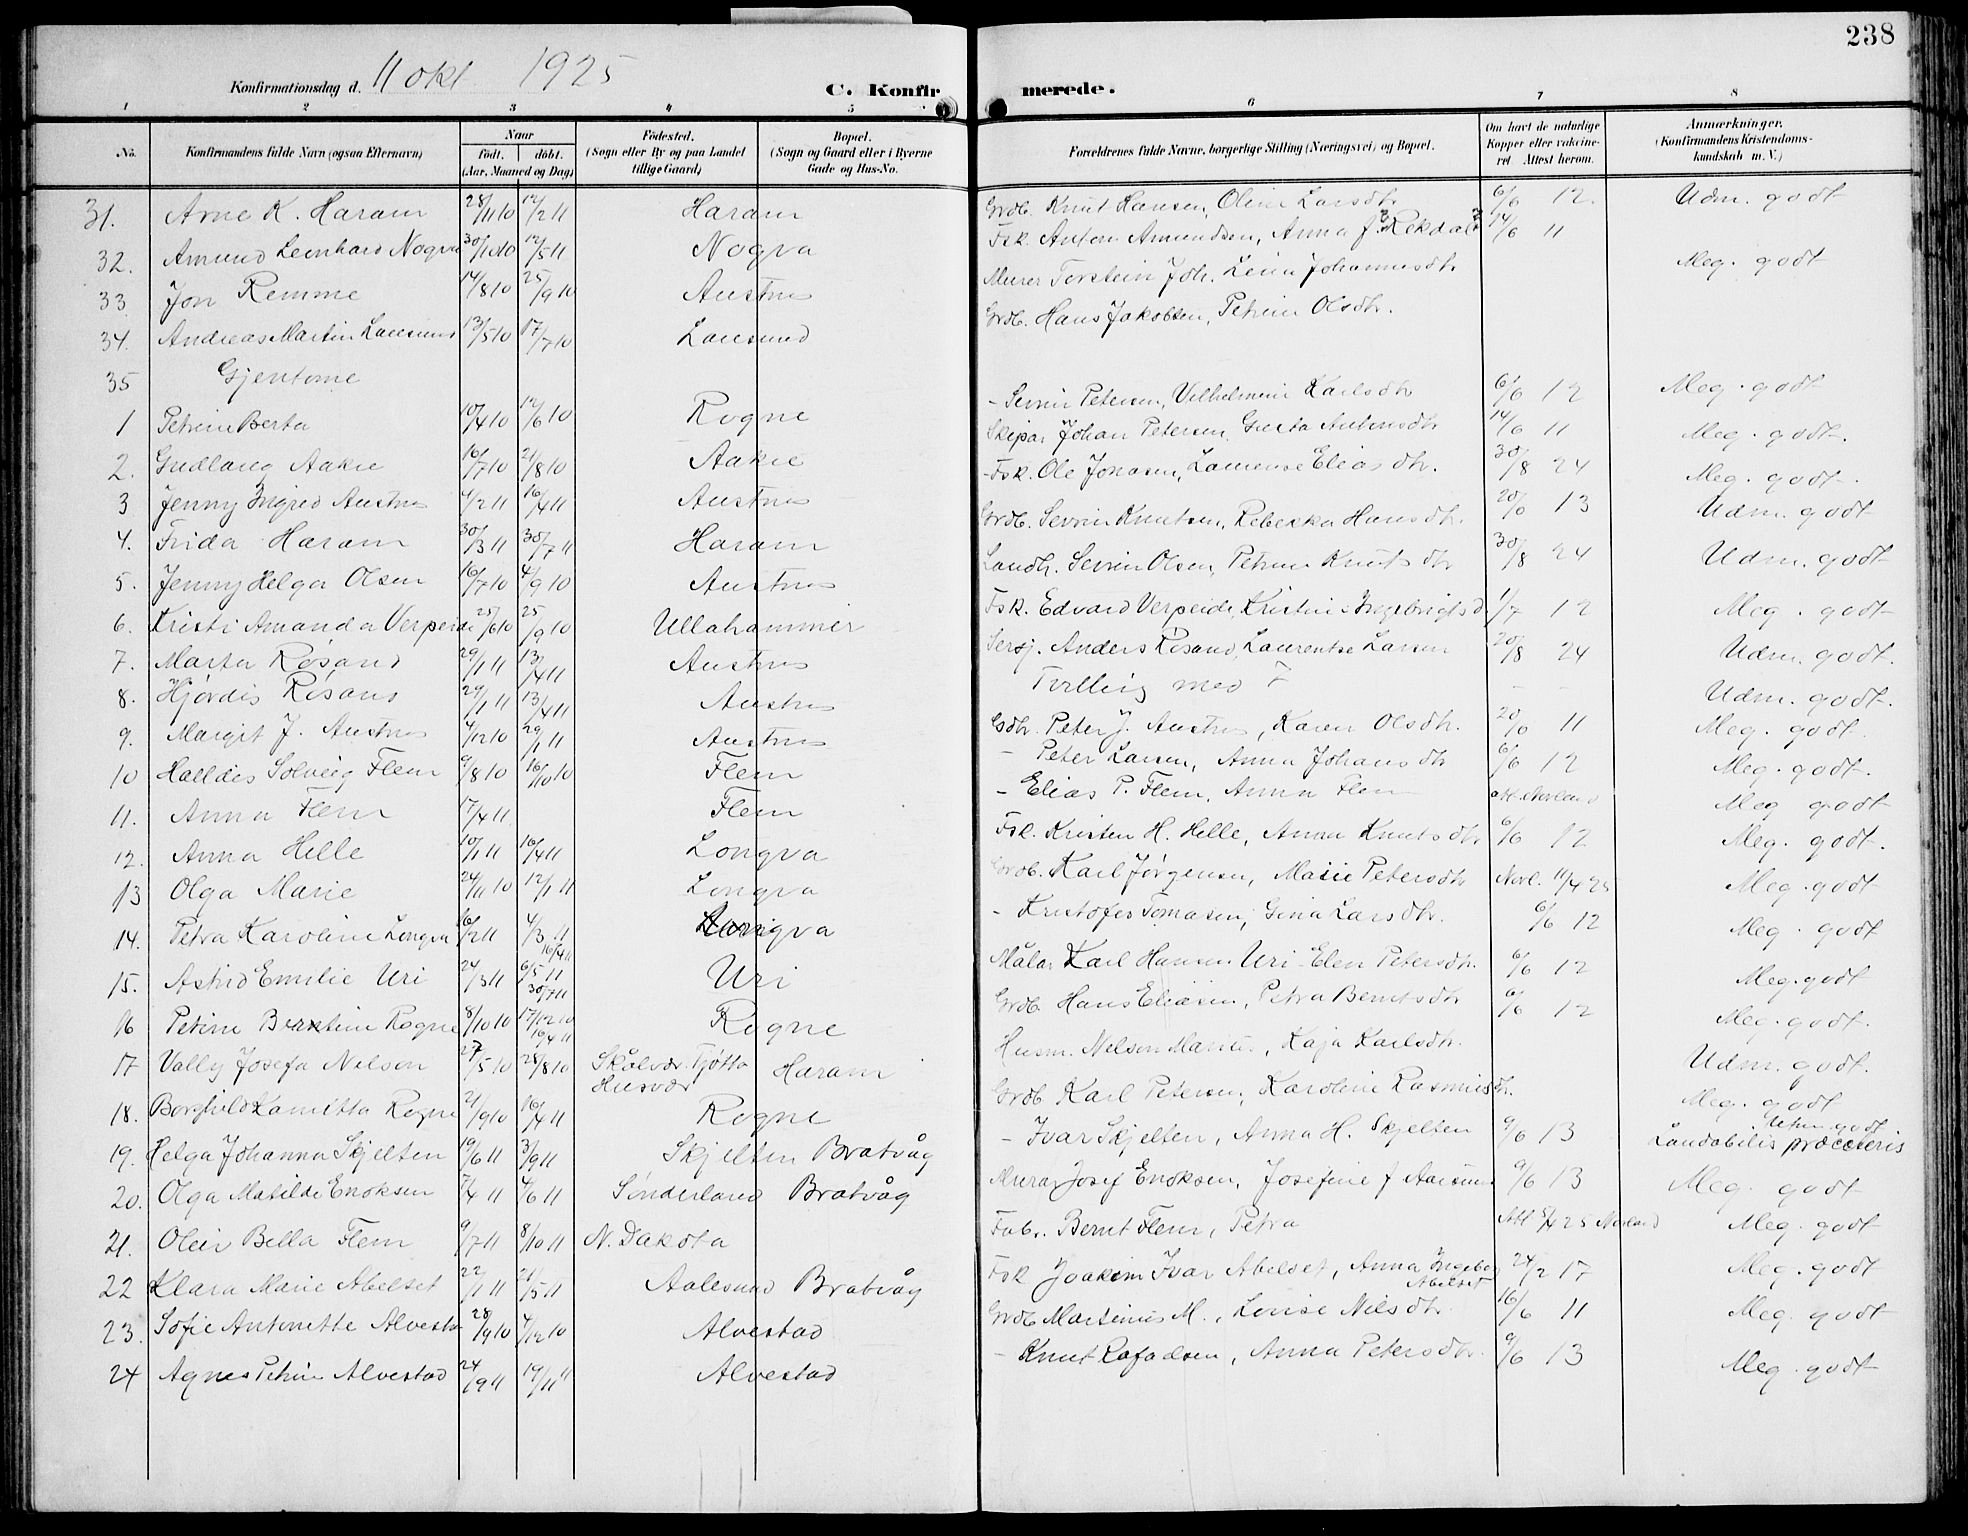 238
Konfirmationsdag d. 11 okt 1925 C. Konfirmerede.
1 2 3 4 5 6 7 8
No. Konfirmandens fulde Navn (ogsaa Efternavn) Naar födt. döbt. (Aar, Maaned og Dag) Födested. (Sogn eller By og paa Landet tillige Gaard) Bopæl. (Sogn og Gaard eller i Byerne Gade og Hus-No. Forældrenes fulde Navne, borgerlige Stilling (Næringsvei) og Bopæl. Om havt de naturlige Kopper eller vaccineret. Attest herom. Anmærkninger. (Konfirmandens Kristendomskundskab m. V.)
31. Arne K. Haram 28/11 10 12/2 11 Haram Grdb. Knut Hansen, Oline Larsdtr 6/6 12. Udm. godt
32. Amund Leonhard Nogva 30/10 10 12/5 11 Nogva Fsk. Anton Amundsen, Anna J. Rekdal 14/6 11
33 Jon Remme 14/8 10 25/9 10 Austnes Murer Torstein Joh. Lena Johannesdtr Meg. godt
34. Andreas Martin Lausund 13/5 10 17/7 10 Lausund Grdb. Hans Jakobsen, Petrine Olsdtr.
35 Gjentorne
1 Petrine Berta 10/4 10 12/6 10 Rogne - Sevrin Petersen, Vilhelmine Karlsdtr 6/6 12 Meg. godt
2. Gudlaug Aakre 16/7 10 21/8 10 Aakre Skipar Johan Petersen, Gusta Antonsdtr 14/6 11 Meg. godt.
3 Jenny Ingrid Austnes 4/2 11 16/4 11 Austnes Fsk. Ole Jonasen, Laurense Eliasdtr. 30/8 24 Meg. godt.
4. Frida Haram 30/3 11 30/7 11 Haram Grdb. Sevrin Knutsen, Rebekka Hansdtr. 13 Udm. godt
5. Jenny Helga Olsen 16/7 10 4/9 10 Austnes Landh. Sevrin Olsen, Petrine Knutsdtr 30/8 24 Udm. godt
6. Kristi Amanda Verpeide 25/6 10 25/9 10 Ullahammer Fsk. Edvard Verpeide, Kristine Ingebrigtsd. 1/7 12 Meg. godt
7. Marta Røsand 29/1 11 13/4 11 Austnes Anders Røsand, Laurentse Larsen 20/8 24 Udm. godt.
8. Hjørdis Røsand 29/1 11 13/4 11 Austnes Tvilling med 7 - - Udm. godt.
9. Margit J. Austnes 4/12 10 29/1 11 Austnes Gdbr. Peter J. Austnes, Karen Olsdtr. 11 Meg. godt.
10 Halldis Solveig Flem 9/8 10 16/10 10 Flem - Peter Larsen, Anna Johansdtr 6/6 12 Meg. godt.
11. Anna Flem 17/4 11 Flem - Elias P. Flem, Anna Flem att. Norland Meg godt
12. Anna Helle 10/1 11 16/4 11 Longva Fsk. Kristen H. Helle, Anna Knutsdtr 6/6 12 Meg. godt.
13 Olga Marie 24/11 10 12/1 11 Longva Grdb. Karl Jørgensen, Masie Petersdtr Norl. 11/4 25 Meg. godt
14. Petra Karoline Longva 16/2 11 4/3 11 16/4 11 Longva - Kristofer Tomasen, Gina Larsdtr. 6/6 12 Meg. godt
15. Astrid Emilie Uri 24/3 11 6/5 11 30/7 11 Uri Målar Karl Hansen Uri Elen Petersdtr. 6/6 12 Meg. godt
16 Petrine Berntine Rogne 8/10 10 17/12 10 16/4 11 Rogne Grdb. Hans Eliasen, Petra Berntsdtr 6/6 12 Meg. godt.
17 Vally Josefa Nelson 27/5 10 28/8 10 Skålvær. Tjøtta Husvær Haram Husm. Nelson Marius, Kaja Karlsdtr. Udm. godt.
18. Borghild Kamitta Rogne 21/9 10 16/4 11 Rogne Grdb Karl Petersen, Karoline Rasmusdtr. Meg. godt
19. Helga Johanna Skjelten 19/6 11 3/9 11 Skjelten Bratvåg - Ivar Skjelten, Anna H. Skjelten 9/6 13 godt Laudabilis præceteris
20. Olga Matilde Enoksen 7/4 11 4/6 11 Sønderland Bratvåg Murar Josef Enoksen, Josefine f Aarsund 9/6 13 Meg. godt
21. Oleir Bella Flem 9/7 11 8/10 11 N. Dakota Fab. Bernt Flem, Petra Att 5/4 25 Norland Meg. godt
22 Klara Marie Abelset 22/1 11 21/5 11 Aalesund Bratvåg Fsk Joakim Ivar Abelset, Anna Ingeb. Abelset 24/2 17 Meg. godt
23. Sofie Antonette Alvestad 28/9 10 4/12 10 Alvestad Grdb Martinus M., Lovise Nilsdtr. 16/6 11 Meg. godt
24 Agnes Petrine Alvestad 24/9 11 19/11 11 Alvestad - Knut Rafaelsen, Anna Petersdtr. 9/6 13 Meg. godt